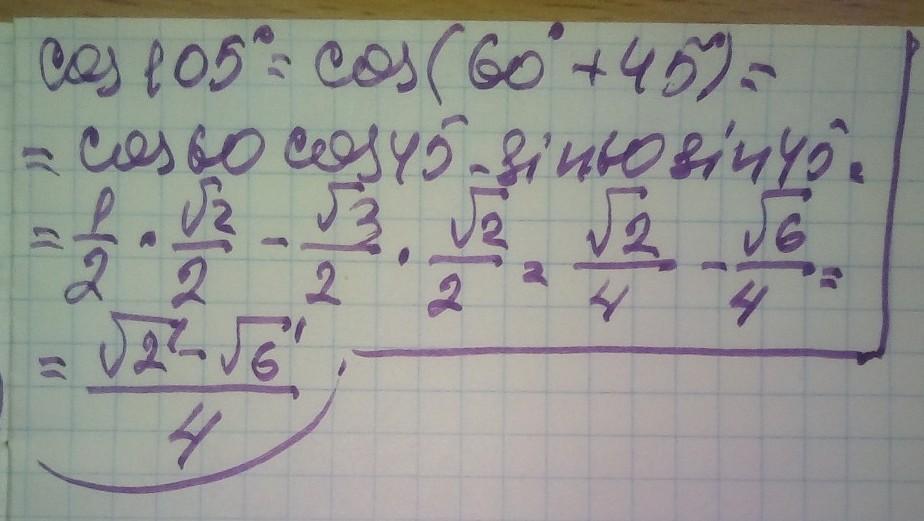 cos 105° = cos(60° + 45°) =
= cos 60 cos 45° - sin 60 sin 45° =
= 1/2 · √2/2 - √3/2 · √2/2 = √2/4 - √6/4 =
= (√2 - √6)/4